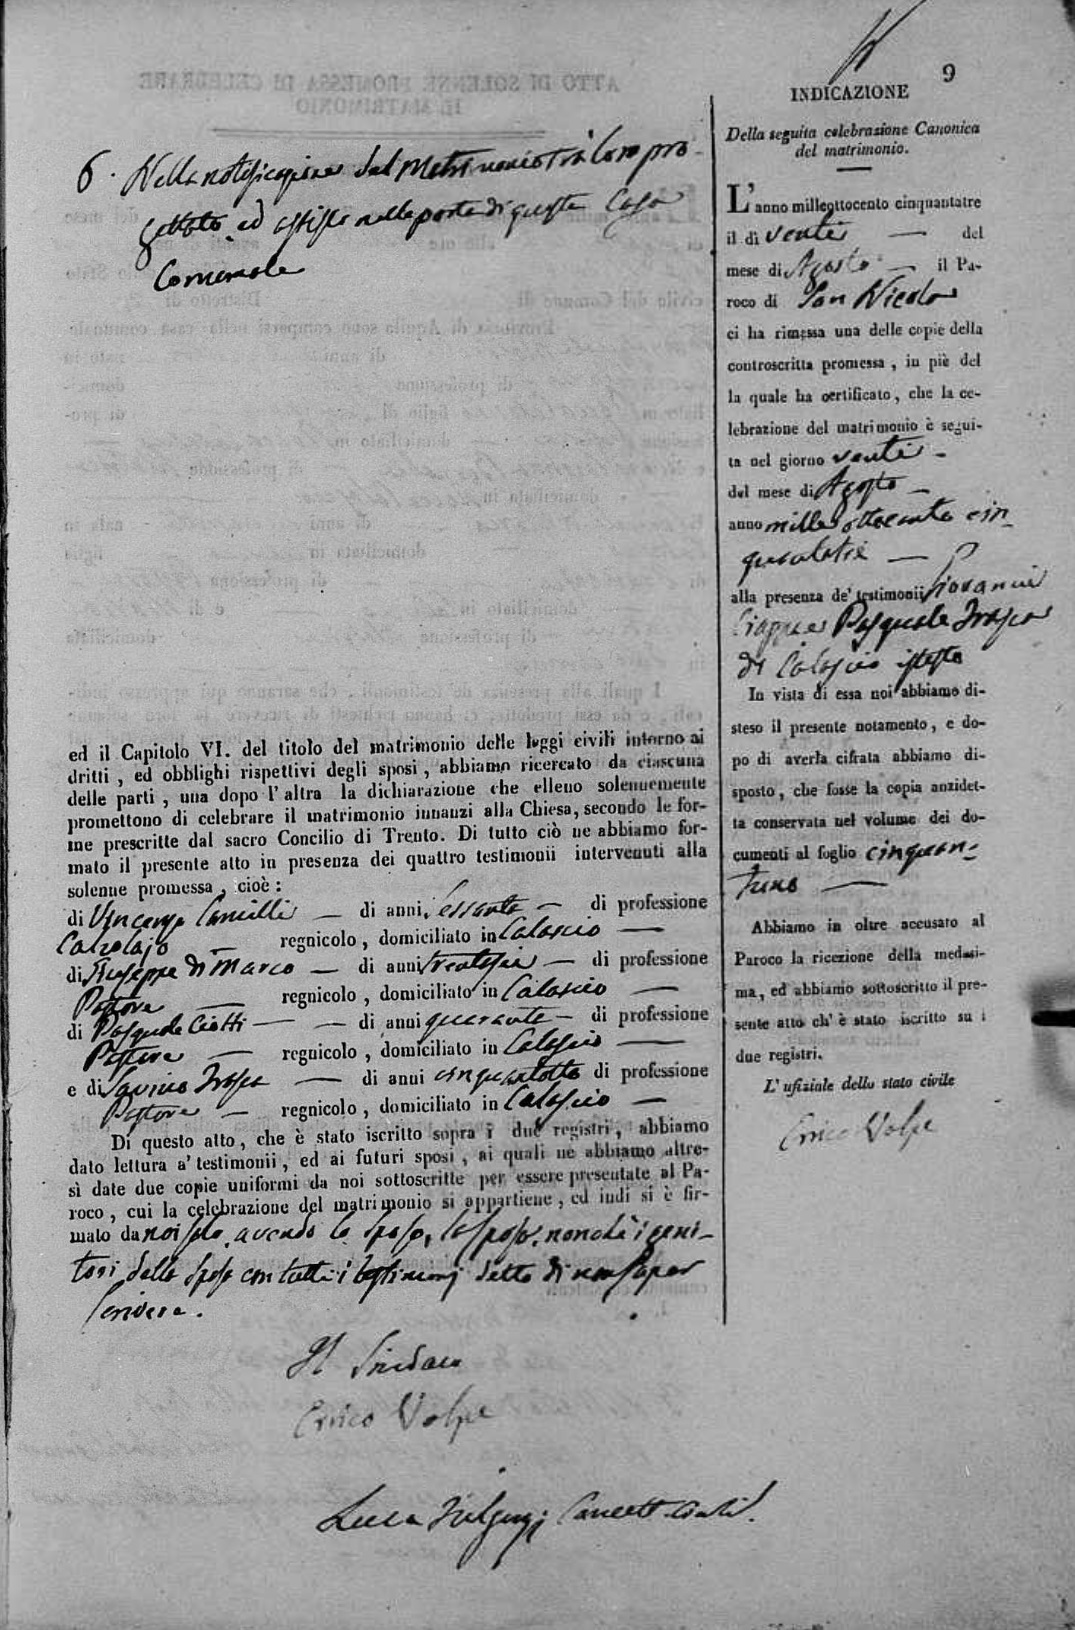 9
6. Nella notificazione del Matrimonio tra loro pro-
gettato ed affisse nella porta di questa Casa
Comunale
ed il Capitolo VI. del titolo del matrimonio delle leggi civili intorno ai
dritti, ed obblighi rispettivi degli sposi, abbiamo ricercato da ciascuna
delle parti, una dopo l'altra la dichiarazione che elleno solennemente
promettono di celebrare il matrimonio innanzi alla Chiesa, secondo le for-
me prescritte dal sacro Concilio di Trento. Di tutto ciò ne abbiamo for-
mato il presente atto in presenza dei quattro testimonii intervenuti alla
solenne promessa, cioè:
di Vincenzo Camilli — di anni sessanta — di professione
Calzolajo — regnicolo, domiciliato in Calascio —
di Giuseppe di Marco — di anni trentasei — di professione
Pastore — regnicolo, domiciliato in Calascio —
di Pasquale Ciotti — — di anni quaranta — di professione
Pastore — regnicolo, domiciliato in Calascio —
e di Savino Frasca — di anni cinquantotto di professione
Pastore — regnicolo, domiciliato in Calascio —
Di questo atto, che è stato iscritto sopra i due registri, abbiamo
dato lettura a' testimonii, ed ai futuri sposi, ai quali ne abbiamo altre-
sì date due copie uniformi da noi sottoscritte per essere presentate al Pa-
roco, cui la celebrazione del matrimonio si appartiene, ed indi si è fir-
mato da noi solo, avendo lo sposo, la sposa, nonchè i geni-
tori dello sposo con tutti i testimonj detto di non saper
scrivere.
Il Sindaco
Errico Volpe
Luca Cancell.
INDICAZIONE
Della seguita celebrazione Canonica
del matrimonio.
L'anno milleottocento cinquantatre
il dì venti — del
mese di Agosto — il Pa-
roco di San Nicola
ci ha rimessa una delle copie della
controscritta promessa, in piè del
la quale ha certificato, che la ce-
lebrazione del matrimonio è segui-
ta nel giorno venti -
del mese di Agosto —
anno mille ottocento cin
quantatre —
alla presenza de' testimonii Giovanni
Pasquale Frasca
di Calascio istesso
In vista di essa noi abbiamo di-
steso il presente notamento, e do-
po di averla cifrata abbiamo di-
sposto, che fosse la copia anzidet-
ta conservata nel volume dei do-
cumenti al foglio cinquan-
tuno —
Abbiamo in oltre accusato al
Paroco la ricezione della medesi-
ma, ed abbiamo sottoscritto il pre-
sente atto ch' è stato iscritto su i
due registri.
L' ufiziale dello stato civile
Errico Volpe